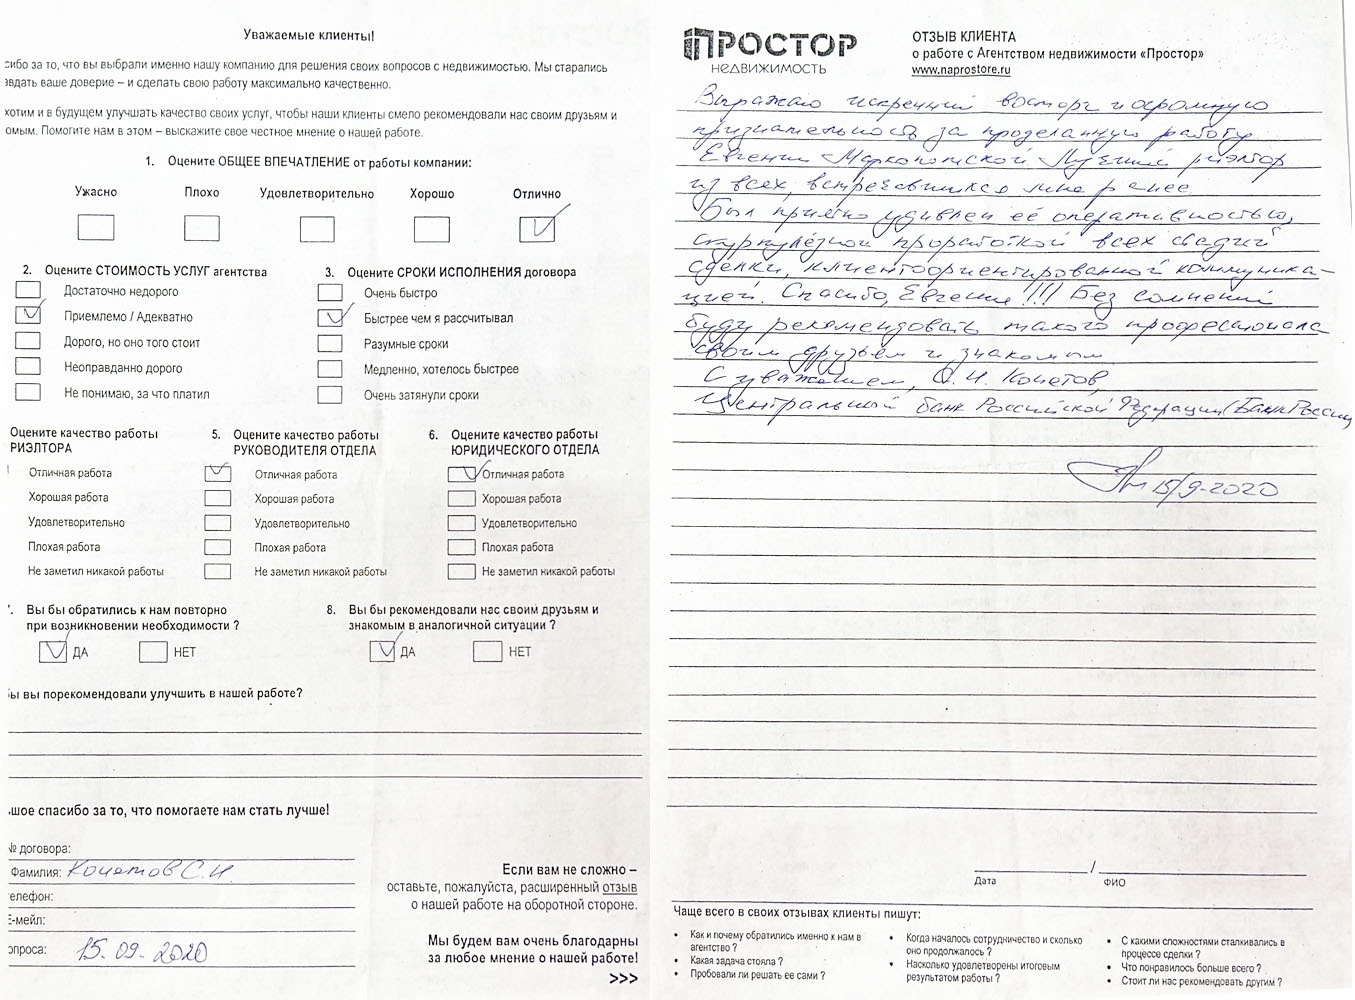 Уважаемые клиенты!
сибо за то, что вы выбрали именно нашу компанию для решения своих вопросов с недвижимостью. Мы старались
авдать ваше доверие – и сделать свою работу максимально качественно.
хотим и в будущем улучшать качество своих услуг, чтобы наши клиенты смело рекомендовали нас своим друзьям и
омым. Помогите нам в этом – выскажите свое честное мнение о нашей работе.
1. Оцените ОБЩЕЕ ВПЕЧАТЛЕНИЕ от работы компании:
Ужасно Плохо Удовлетворительно Хорошо Отлично
2. Оцените СТОИМОСТЬ УСЛУГ агентства
Достаточно недорого
Приемлемо / Адекватно
Дорого, но оно того стоит
Неоправданно дорого
Не понимаю, за что платил
3. Оцените СРОКИ ИСПОЛНЕНИЯ договора
Очень быстро
Быстрее чем я рассчитывал
Разумные сроки
Медленно, хотелось быстрее
Очень затянули сроки
Оцените качество работы
РИЭЛТОРА
Отличная работа
Хорошая работа
Удовлетворительно
Плохая работа
Не заметил никакой работы
5. Оцените качество работы
РУКОВОДИТЕЛЯ ОТДЕЛА
Отличная работа
Хорошая работа
Удовлетворительно
Плохая работа
Не заметил никакой работы
6. Оцените качество работы
ЮРИДИЧЕСКОГО ОТДЕЛА
Отличная работа
Хорошая работа
Удовлетворительно
Плохая работа
Не заметил никакой работы
. Вы бы обратились к нам повторно
при возникновении необходимости ?
ДА НЕТ
8. Вы бы рекомендовали нас своим друзьям и
знакомым в аналогичной ситуации ?
ДА НЕТ
бы вы порекомендовали улучшить в нашей работе?
шое спасибо за то, что помогаете нам стать лучше!
№ договора:
Фамилия: Кочетов С.И.
елефон:
Е-мейл:
опроса: 15.09.2020
Если вам не сложно –
оставьте, пожалуйста, расширенный отзыв
о нашей работе на оборотной стороне.
Мы будем вам очень благодарны
за любое мнение о нашей работе!
>>>
ПРОСТОР
недвижимость
ОТЗЫВ КЛИЕНТА
о работе с Агентством недвижимости «Простор»
www.naprostore.ru
Выражаю искренний восторг и огромную
признательность за проделанную работу
Евгении Лучший риэлтор
из всех, встречавшихся мне ранее.
Был приятно удивлен её оперативностью,
скурпулёзной проработкой всех стадий
сделки, клиентоориентированной коммуника-
цией. Спасибо, Евгения!!! Без сомнений
буду рекомендовать такого профессионала
своим друзьям и знакомым
С уважением, С.И. Кочетов,
Центральный банк Российской Федерации (Банк России
15/9-2020
/
Дата ФИО
Чаще всего в своих отзывах клиенты пишут:
• Как и почему обратились именно к нам в
агентство ?
• Какая задача стояла ?
• Пробовали ли решать ее сами ?
• Когда началось сотрудничество и сколько
оно продолжалось ?
• Насколько удовлетворены итоговым
результатом работы ?
• С какими сложностями сталкивались в
процессе сделки ?
• Что понравилось больше всего ?
• Стоит ли нас рекомендовать другим ?